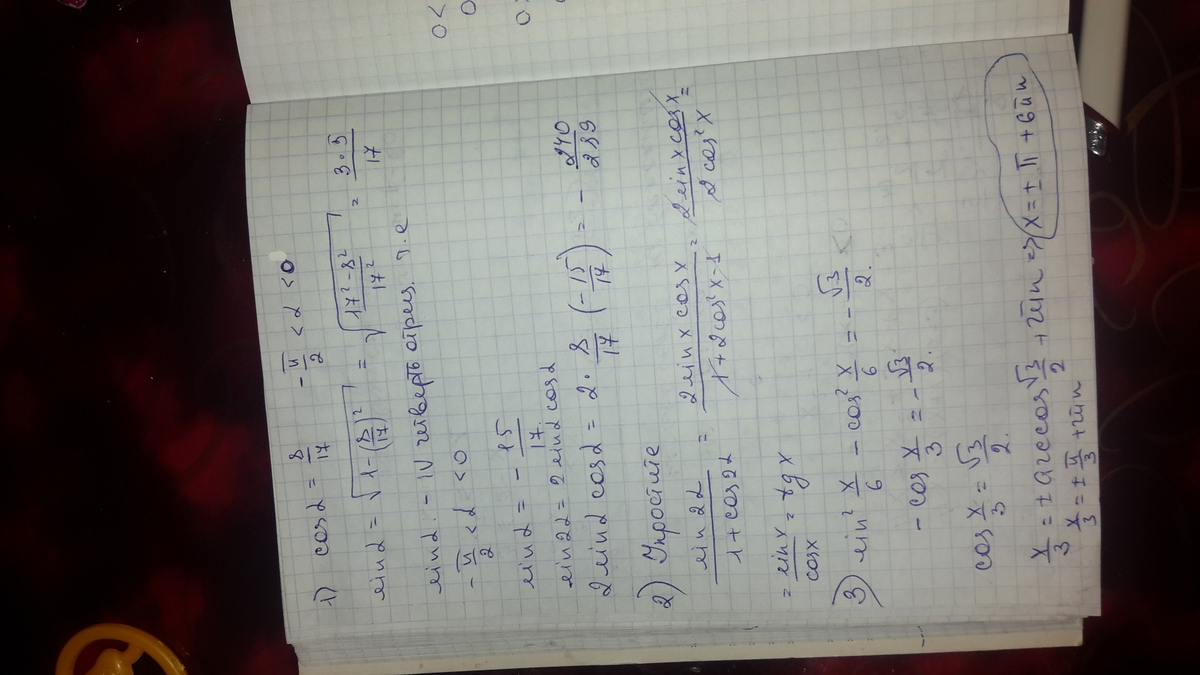 0<
0
0>
1) cos α = 8/17    -π/2 < α < 0
sin α = √(1-(8/17)²) = √((17²-8²)/17²) = (3·5)/17
sin α. - IV четверть отрез. т.е
-π/2 < α < 0
sin α = - 15/17
sin 2α = 2 sin α cos α
2 sin α cos α = 2 · 8/17 (-15/17) = - 240/289
2) Упростите
sin 2α/(1+cos 2α) = (2 sin x cos x)/(1+2cos² x-1) = (2 sin x cos x)/(2 cos² x) =
= sin x/cos x = tg x
3) sin² x/6 - cos² x/6 = -√3/2 <0
-cos x/3 = -√3/2.
cos x/3 = √3/2.
x/3 = ± arccos √3/2 + 2πn => x = ± π + 6πn
x/3 = ± π/3 + 2πn